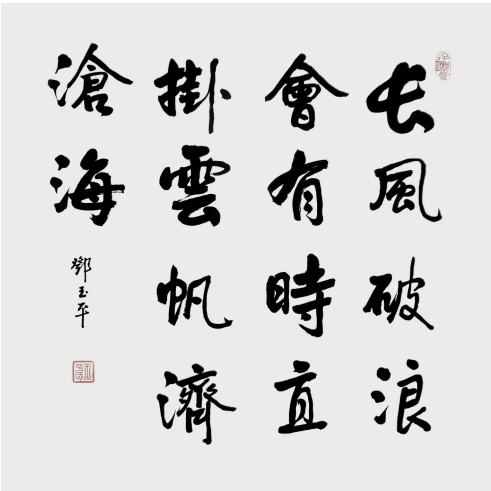 长風破浪
會有時直
掛雲帆濟
滄海
鄧玉平